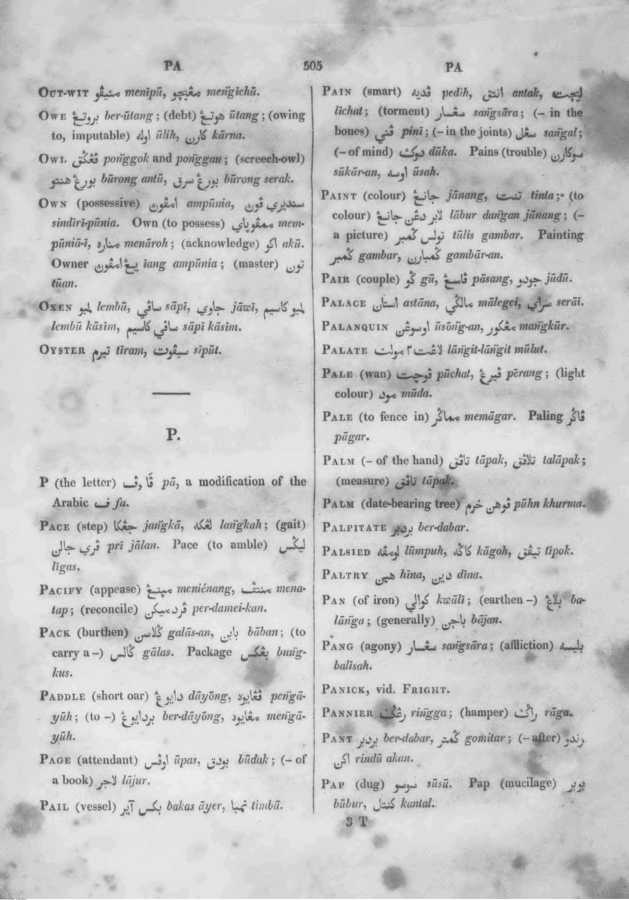 PA 505 PA
OUT-WIT منيڤو menīpū, مڠيچو meṅgichū.
OWE بروتڠ ber-ūtang; (debt) هوتڠ ūtang; (owing
to, imputable) اوله ūlih, كارن kārna.
OWL ڤڠڬق poṅggok and poṅggan; (screech-owl)
بورڠ هنتو būrong antū, بورڠ سرق būrong serak.
OWN (possessive) امڤون ampūnia, سنديري ڤون
sindirī-pūnia. Own (to possess) ممڤوڽاي mem-
pūniā-ī, مناره menāroh; (acknowledge) اكو akū.
Owner يڠ امڤون iang ampūnia; (master) تون
tūan.
OXEN لمبو lembū, ساڤي sāpī, جاوي jāwī, لمبو كاسيم
lembū kāsim, ساڤي كاسيم sāpī kāsim.
OYSTER تيرم tīram, سيڤوت sīpūt.
P.
P (the letter) ڤ, ڤا pā, a modification of the
Arabic ف fa.
PACE (step) جڠكا jaṅgkā, لڠكه laṅgkah; (gait)
ڤري جالن prī jālan. Pace (to amble) ليڬس
līgas.
PACIFY (appease) منينڠ meniénang, منتڤ mena-
tap; (reconcile) ڤردميكن per-damei-kan.
PACK (burthen) ڬلاسن galās-an, بابن bāban; (to
carry a –) ڬالس gālas. Package بڠكس buṅg-
kus.
PADDLE (short oar) دايوڠ dāyōng, ڤڠايه peṅgā-
yūh; (to –) بردايوڠ ber-dāyōng, مڠايه meṅgā-
yūh.
PAGE (attendant) اوڤس ūpas, بودق būdak; (– of
a book) لاجر lājur.
PAIL (vessel) بكس آير bakas āyer, تمبا timbā.
PAIN (smart) ڤديه pedīh, انتق antak, ليچت
līchat; (torment) سڠسار saṅgsāra; (– in the
bones) ڤني pinī; (– in the joints) سڠل saṅgal;
(– of mind) دوك dūka. Pains (trouble) سوكارن
sūkār-an, اوسه ūsah.
PAINT (colour) جانڠ jānang, تنت tinta; (to
colour) لابر دڠن جانڠ lābur daṅgan jānang; (–
a picture) تولس ڬمبر tūlis gambar. Painting
ڬمبر gambar, ڬمبارن gambār-an.
PAIR (couple) ڬو gū, ڤاسڠ pāsang, جودو jūdū.
PALACE استان astāna, مالڬي mālegei, سراي serāi.
PALANQUIN اوسوڠن ūsōṅg-an, مڠكور maṅgkūr.
PALATE لاڠت٢ مولت lāṅgit-lāṅgit mūlut.
PALE (wan) ڤوچت pūchat, ڤيرڠ pērang; (light
colour) مود mūda.
PALE (to fence in) مماڬر memāgar. Paling ڤاڬر
pāgar.
PALM (– of the hand) تاڤق tāpak, تلاڤق talāpak;
(measure) تاڤق tāpak.
PALM (date-bearing tree) ڤوهن خرم pūhn khurma.
PALPITATE بردبر ber-dabar.
PALSIED لومڤه lūmpuh, كاڬه kāgoh, تيڤق tīpok.
PALTRY هين hīna, دين dīna.
PAN (of iron) كوالي kwālī; (earthen –) بلاڠ ba-
lāṅga; (generally) باجن bājan.
PANG (agony) سڠسار saṅgsāra; (affliction) بليسه
balīsah.
PANICK, vid. FRIGHT.
PANNIER رڠڬ riṅgga; (hamper) راڬ rāga.
PANT بردبر ber-dabar, ڬمتر gomitar; (– after) رندو
اكن rindū akan.
PAP (dug) سوسو sūsū. Pap (mucilage) بوبر
būbur, كنتل kantal.
3 T